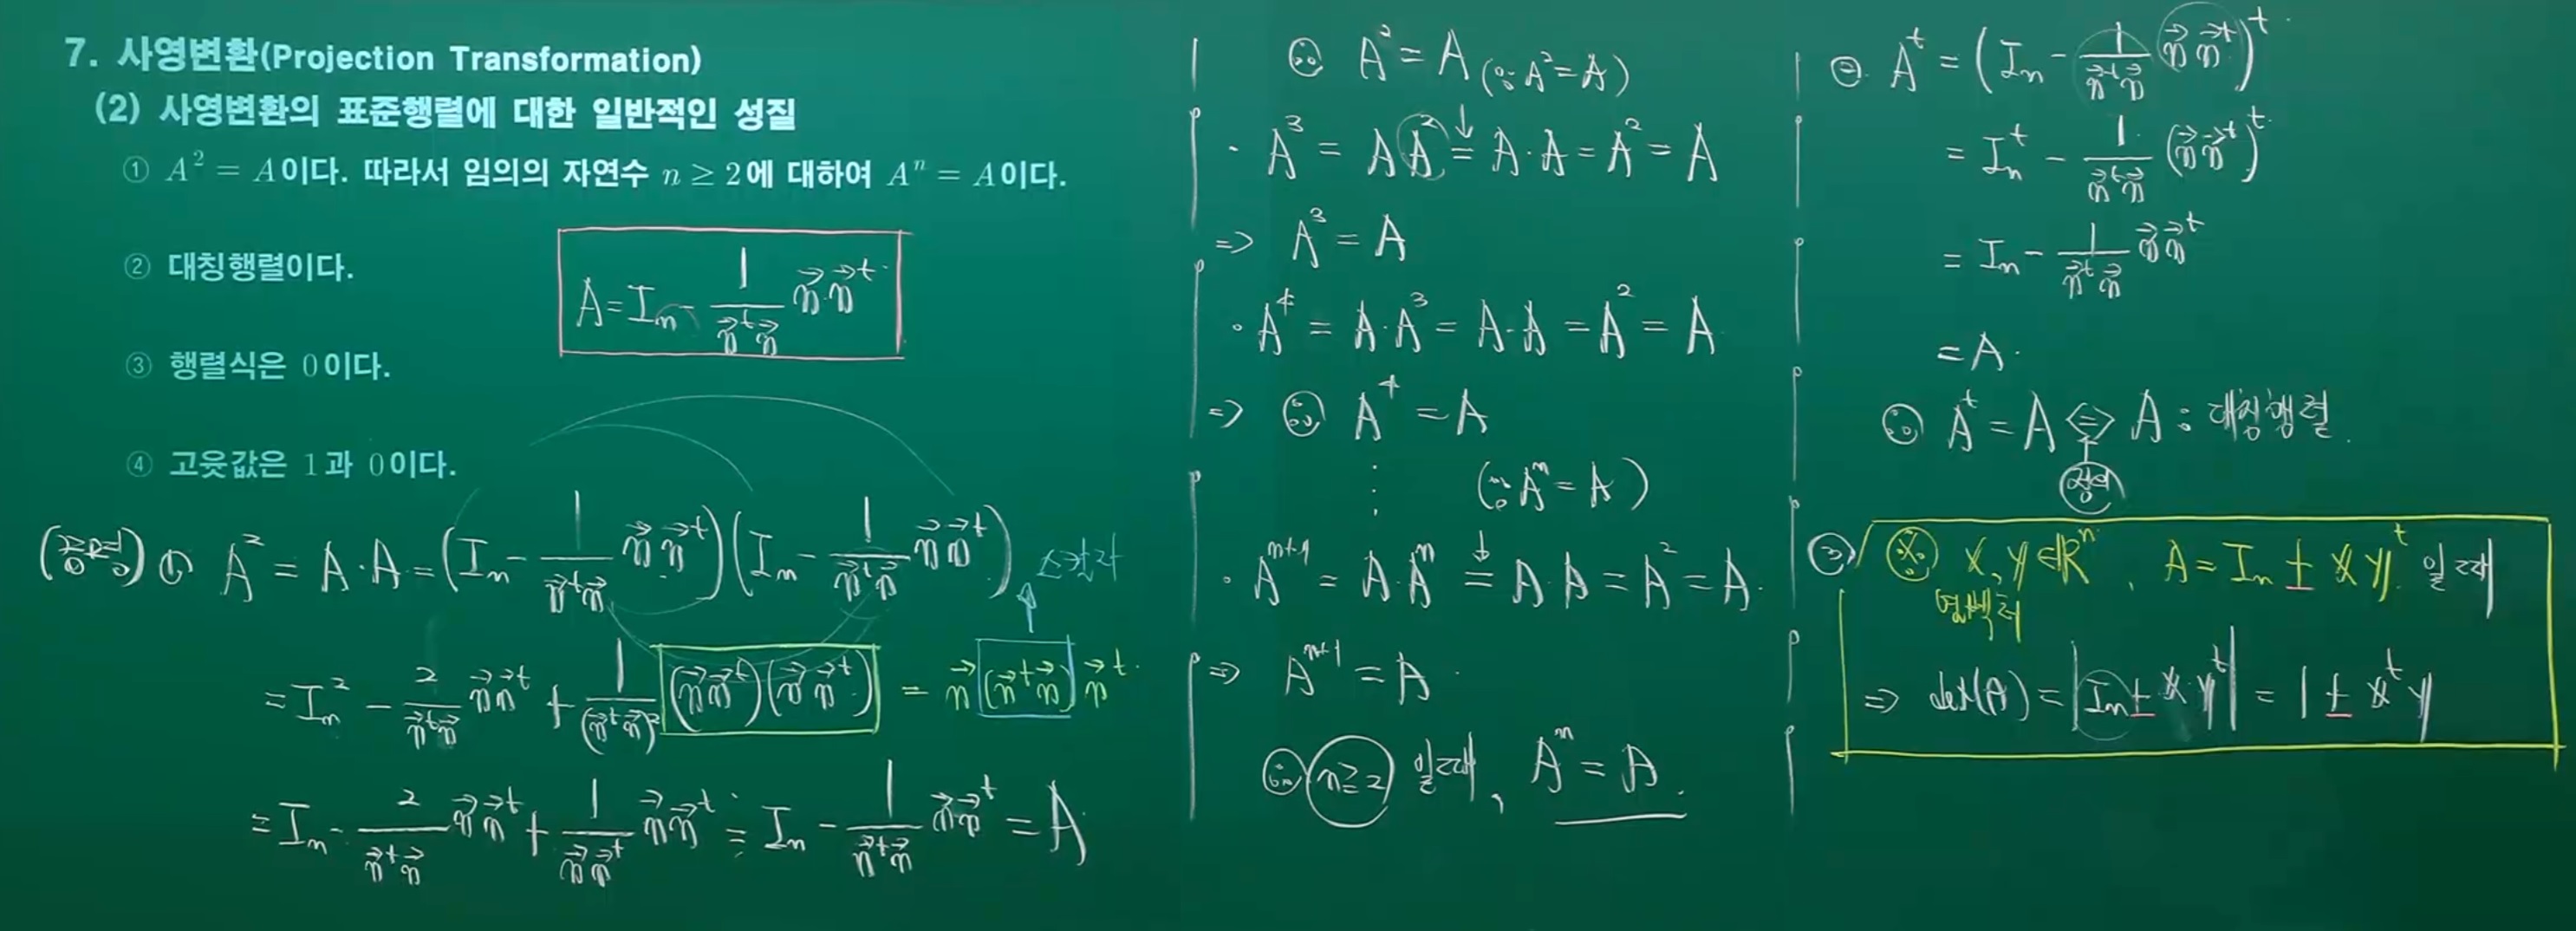 7. 사영변환(Projection Transformation)
(2) 사영변환의 표준행렬에 대한 일반적인 성질
① A² = A이다. 따라서 임의의 자연수 n ≥ 2에 대하여 Aⁿ = A이다.
② 대칭행렬이다.
A = Iₙ - 1/(n⃗ᵗn⃗) n⃗n⃗ᵗ
③ 행렬식은 0이다.
④ 고윳값은 1과 0이다.
① A² = A·A = (Iₙ - 1/(n⃗ᵗn⃗) n⃗n⃗ᵗ)(Iₙ - 1/(n⃗ᵗn⃗) n⃗n⃗ᵗ)
= Iₙ² - 2/(n⃗ᵗn⃗) n⃗n⃗ᵗ + 1/(n⃗ᵗn⃗)² (n⃗n⃗ᵗ)(n⃗n⃗ᵗ) = n⃗(n⃗ᵗn⃗)n⃗ᵗ
= Iₙ - 2/(n⃗ᵗn⃗) n⃗n⃗ᵗ + 1/(n⃗n⃗ᵗ) n⃗n⃗ᵗ = Iₙ - 1/(n⃗ᵗn⃗) n⃗n⃗ᵗ = A
∴ A² = A (∵ A² = A)
· A³ = AA² = A·A = A² = A
⇒ A³ = A
· A⁴ = A·A³ = A·A = A² = A
⇒ ∴ A⁴ = A
⋮ (∵ Aⁿ = A)
· Aⁿ⁺¹ = A·Aⁿ = A·A = A² = A.
⇒ Aⁿ⁺¹ = A.
∴ n≥2 일때, Aⁿ = A.
② Aᵗ = (Iₙ - 1/(n⃗ᵗn⃗) n⃗n⃗ᵗ)ᵗ
= Iₙᵗ - 1/(n⃗ᵗn⃗) (n⃗n⃗ᵗ)ᵗ
= Iₙ - 1/(n⃗ᵗn⃗) n⃗n⃗ᵗ
= A.
∴ Aᵗ = A ⇔ A : 대칭행렬.
정의
③ ※ x, y ∈ ℝⁿ, A = Iₙ ± xyᵗ 일때
열벡터
⇒ det(A) = |Iₙ ± xyᵗ| = 1 ± xᵗy